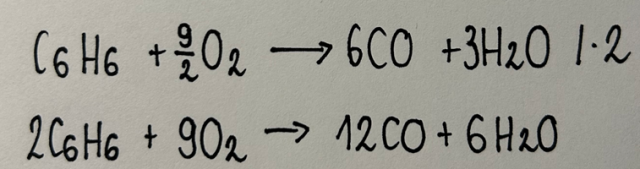 C6H6 + 9/2 O2 → 6CO + 3H2O |·2
2C6H6 + 9O2 → 12CO + 6H2O